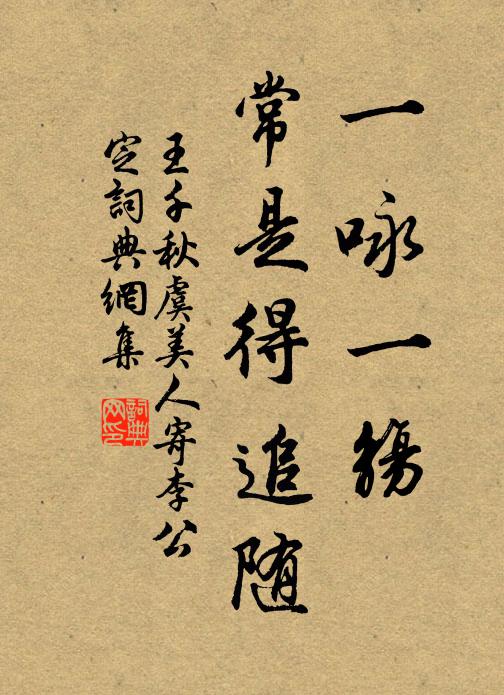 一咏一觴
常是得追随
王千秋虞美人寄李公
定詞典網集
詞典
网印